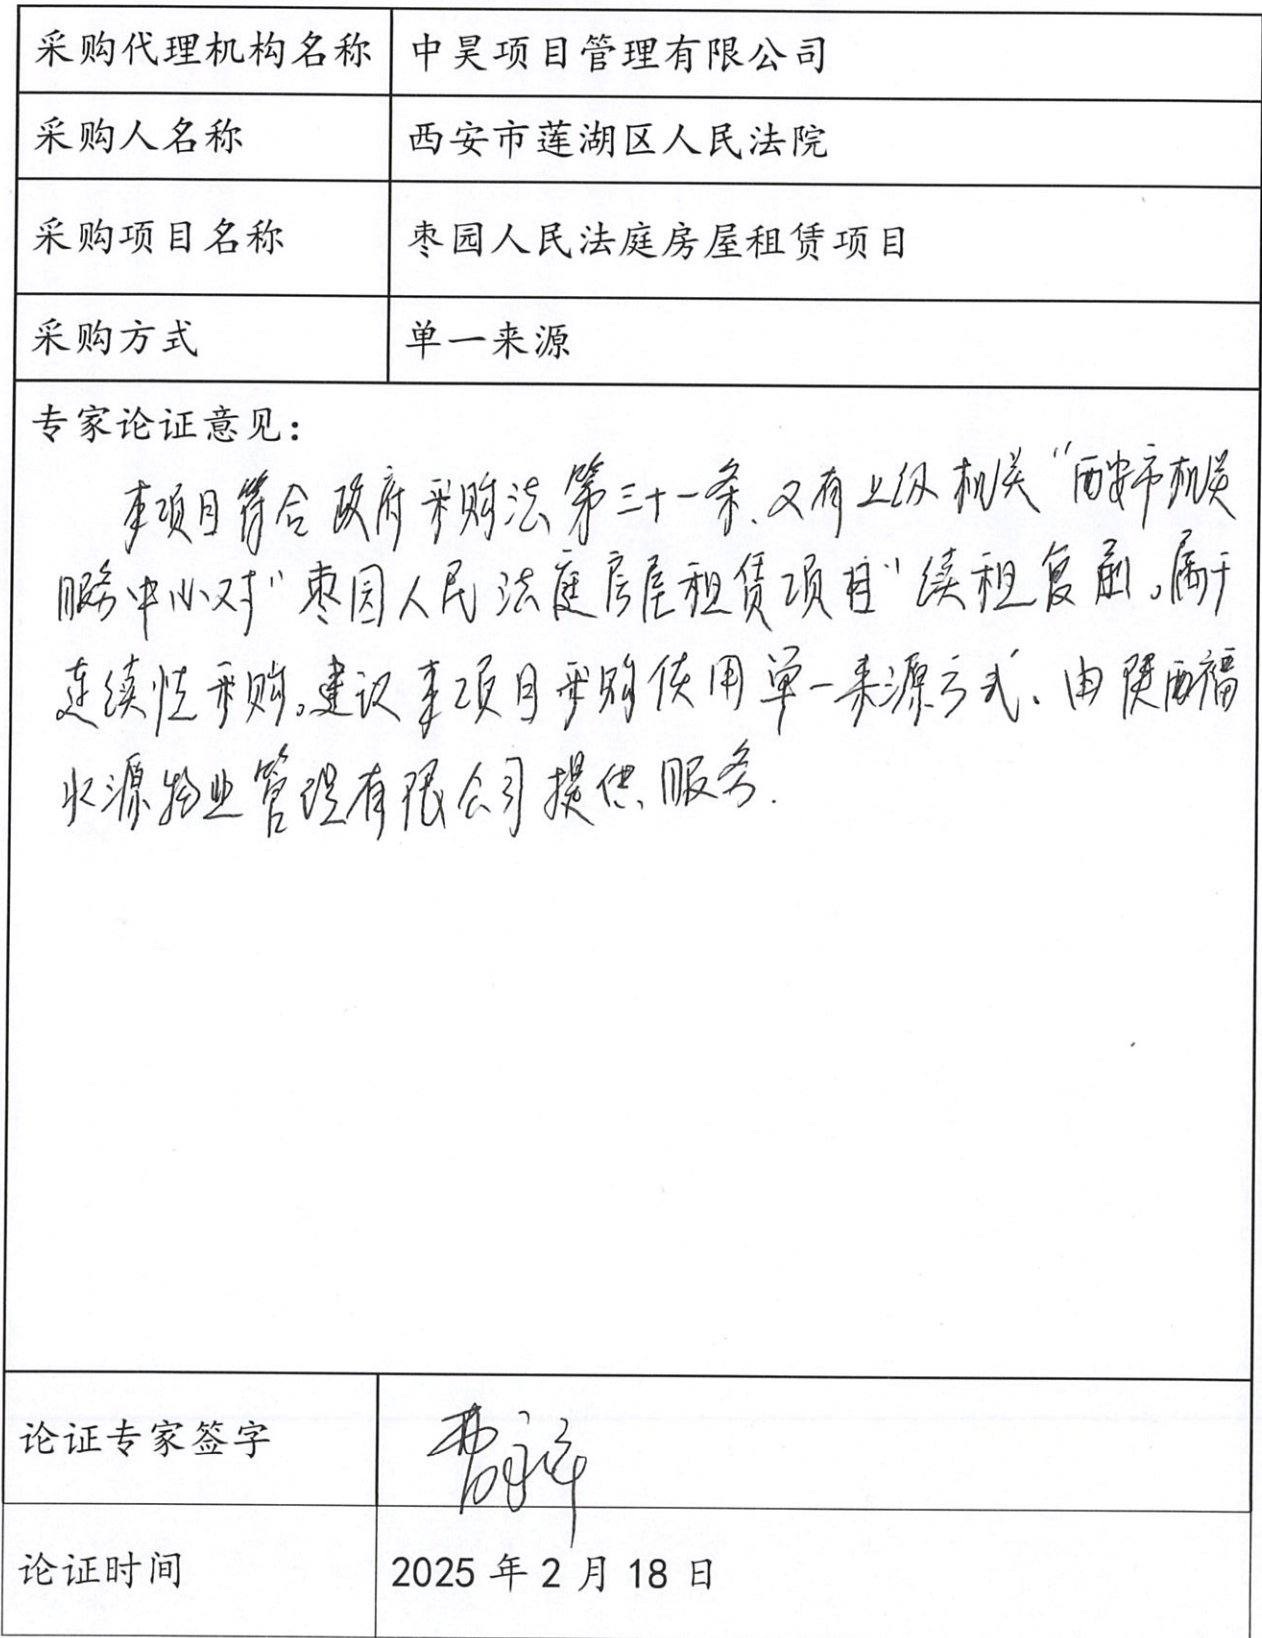 采购代理机构名称 中昊项目管理有限公司
采购人名称 西安市莲湖区人民法院
采购项目名称 枣园人民法庭房屋租赁项目
采购方式 单一来源
专家论证意见：
本项目符合政府采购法第三十一条、又有上级机关“西安市机关
服务中心对“枣园人民法庭房屋租赁项目”续租复函。属于
连续性采购。建议本项目采购使用单一来源方式、由陕西福
水源物业管理有限公司提供服务.
论证专家签字
论证时间 2025 年 2 月 18 日